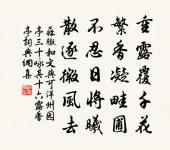 重露覆千花
繁香凝畦圃
不忍日將曦
散逐微風去
蘇轍和文與可洋州園
亭三十詠其十六露香
亭詞典網集